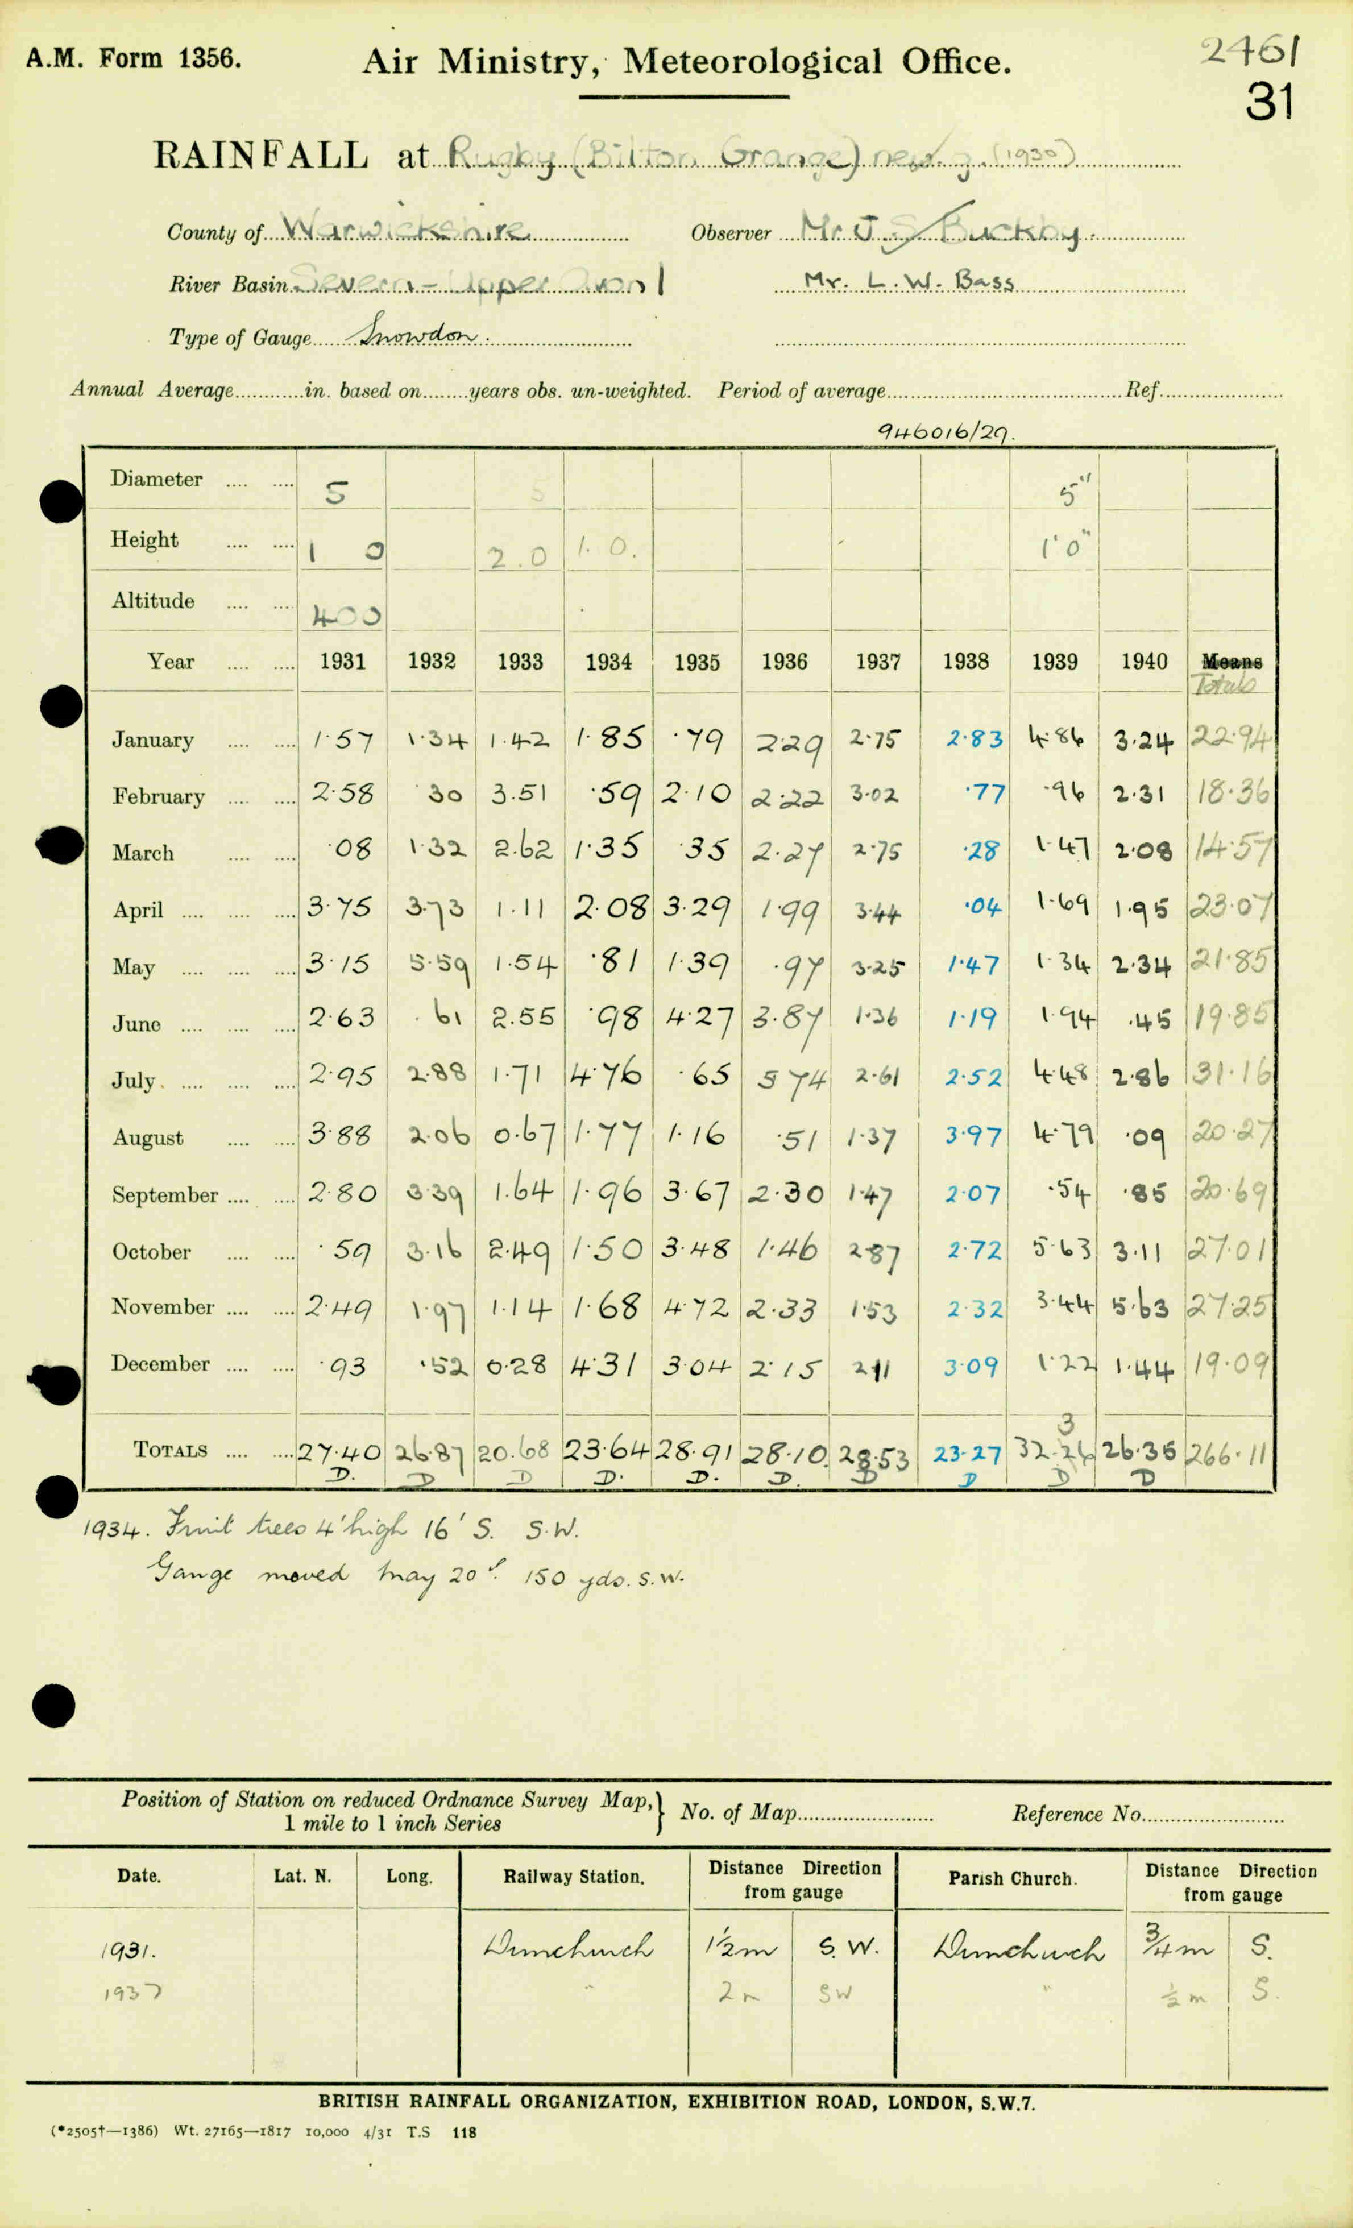 A.M. Form 1356. Air Ministry, Meteorological Office. 2461
31
RAINFALL at Rugby (Bilton Grange) new g. (1930)
County of Warwickshire Observer Mr. J. S. Buckby
River Basin Severn - Upper Avon 1 Mr. L. W. Bass
Type of Gauge Snowdon.
Annual Average in. based on years obs. un-weighted. Period of average Ref.
946016/29.
Diameter 5 5 5"
Height 1 0 2.0 1. 0. 1'0"
Altitude 400
Year 1931 1932 1933 1934 1935 1936 1937 1938 1939 1940 Means
Totals
January 1.57 1.34 1.42 1.85 .79 2.29 2.75 2.83 4.86 3.24 22.94
February 2.58 30 3.51 .59 2.10 2.22 3.02 .77 .96 2.31 18.36
March .08 1.32 2.62 1.35 .35 2.27 2.75 .28 1.47 2.08 14.57
April 3.75 3.73 1.11 2.08 3.29 1.99 3.44 .04 1.69 1.95 23.07
May 3.15 5.59 1.54 .81 1.39 .97 3.25 1.47 1.34 2.34 21.85
June 2.63 .61 2.55 .98 4.27 3.87 1.36 1.19 1.94 .45 19.85
July 2.95 2.88 1.71 4.76 .65 5 74 2.61 2.52 4.48 2.86 31.16
August 3.88 2.06 0.67 1.77 1.16 .51 1.37 3.97 4.79 .09 20.27
September 2.80 3.39 1.64 1.96 3.67 2.30 1.47 2.07 .54 .85 20.69
October .59 3.16 2.49 1.50 3.48 1.46 2.87 2.72 5.63 3.11 27.01
November 2.49 1.97 1.14 1.68 4.72 2.33 1.53 2.32 3.44 5.63 27.25
December .93 .52 0.28 4.31 3.04 2.15 2.11 3.09 1.22 1.44 19.09
3
TOTALS 27.40 26.87 20.68 23.64 28.91 28.10. 28.53 23.27 32.26 26.35 266.11
D. D D D. D. D. D D D D
1934. Fruit trees 4' high 16' S. S.W.
Gauge moved May 20th. 150 yds. S.W.
Position of Station on reduced Ordnance Survey Map, } No. of Map Reference No.
1 mile to 1 inch Series
Date. Lat. N. Long. Railway Station. Distance Direction from gauge Parish Church. Distance Direction from gauge
1931. Dunchurch 1½m S. W. Dunchurch ¾m S.
1937 " 2m SW " ½ m S.
BRITISH RAINFALL ORGANIZATION, EXHIBITION ROAD, LONDON, S.W.7.
(*2505†—1386) Wt. 27165—1817 10,000 4/31 T.S 118